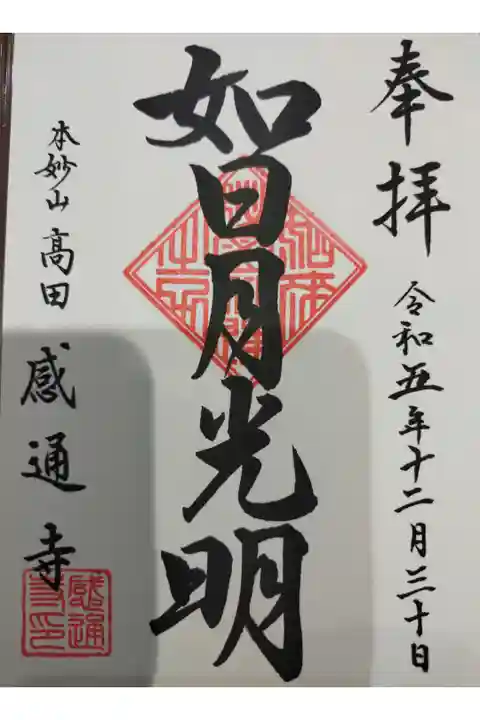 奉拝
令和五年十二月三十日
如日月光明
本妙山高田感通寺
感通寺印